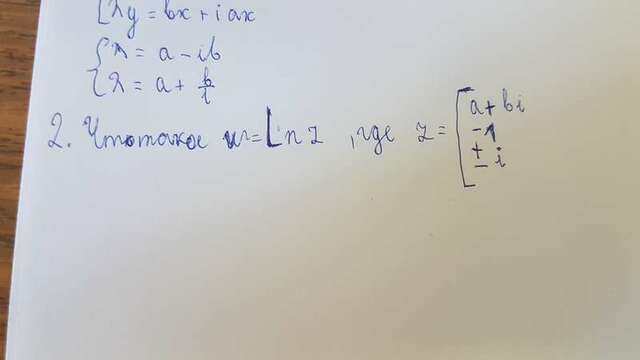 λy = bx + i ax
λ = a - ib
λ = a + b/i
2. Что такое w = Ln z, где z = [ a + bi
-1
± i